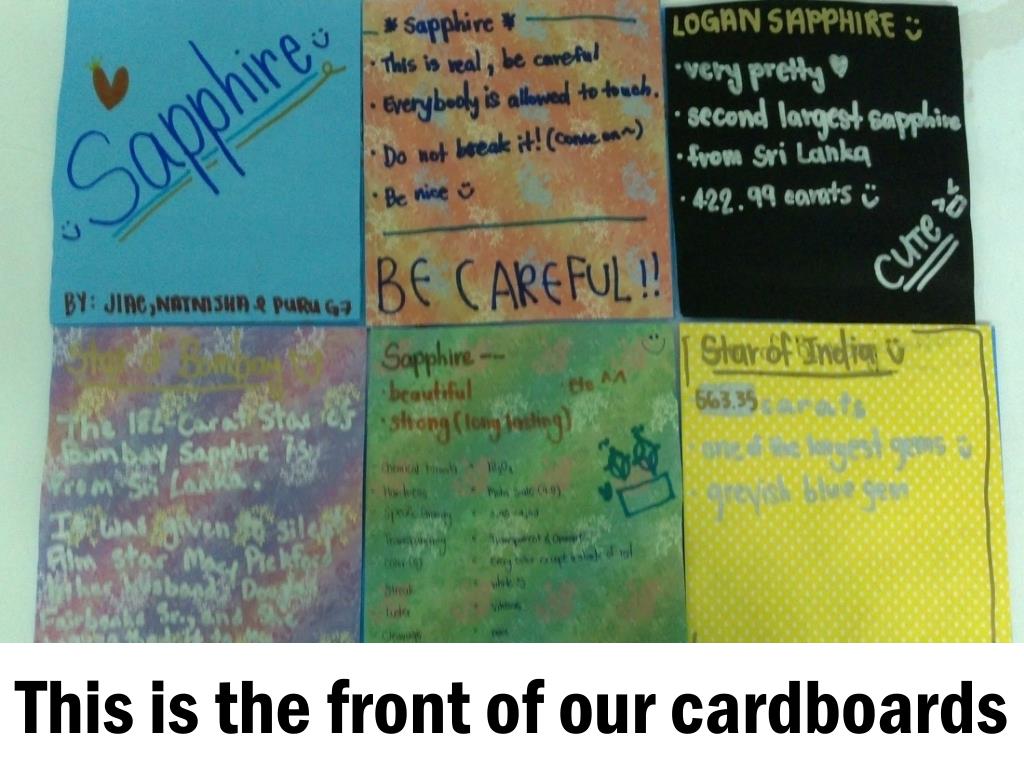 Sapphire
BY: JIAE, NATNISHA & PURU G7
* Sapphire *
· This is real, be careful
· Everybody is allowed to touch.
· Do not break it! (Come on~)
· Be nice
BE CAREFUL!!
LOGAN SAPPHIRE
· very pretty
· second largest sapphire
· from Sri Lanka
· 422.99 carats
CUTE
Star of Bombay
The 182-Carat Star of
bombay Sapphire is
From Sri Lanka.
It was given to silent
Film star Mary
Fairbanks Sr. and she
Sapphire --
· beautiful
· Etc ^^
· strong (long lasting)
Hardness
Transparency
Color(s)
Streak
Luster
Cleavage
Star of India
563.35 carats
· one of the largest gems
· greyish blue gem
This is the front of our cardboards